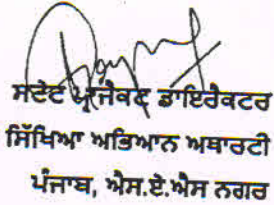 ਸਟੇਟ ਪ੍ਰਾਜੈਕਟ ਡਾਇਰੈਕਟਰ
ਸਿੱਖਿਆ ਅਭਿਆਨ ਅਥਾਰਟੀ
ਪੰਜਾਬ, ਐਸ.ਏ.ਐਸ ਨਗਰ